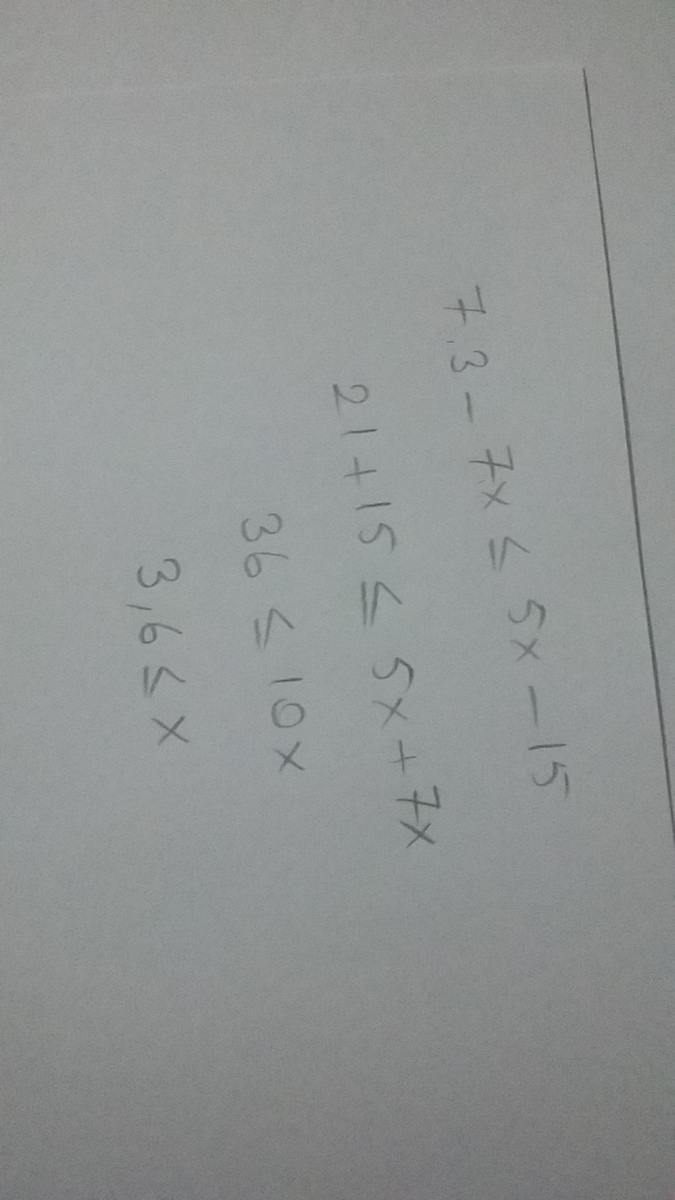 7.3 - 7x ≤ 5x - 15
21 + 15 ≤ 5x + 7x
36 ≤ 10x
3,6 ≤ x